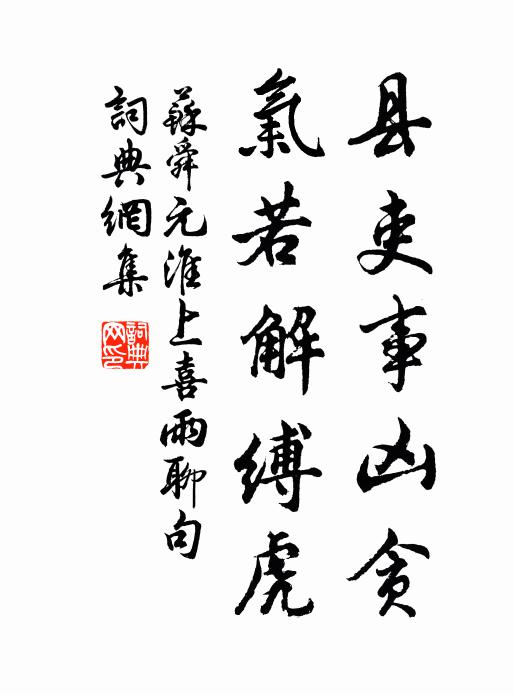 县吏事凶贪
氣若解缚虎
蘇舜元淮上喜雨聊句
詞典網集
詞典网印